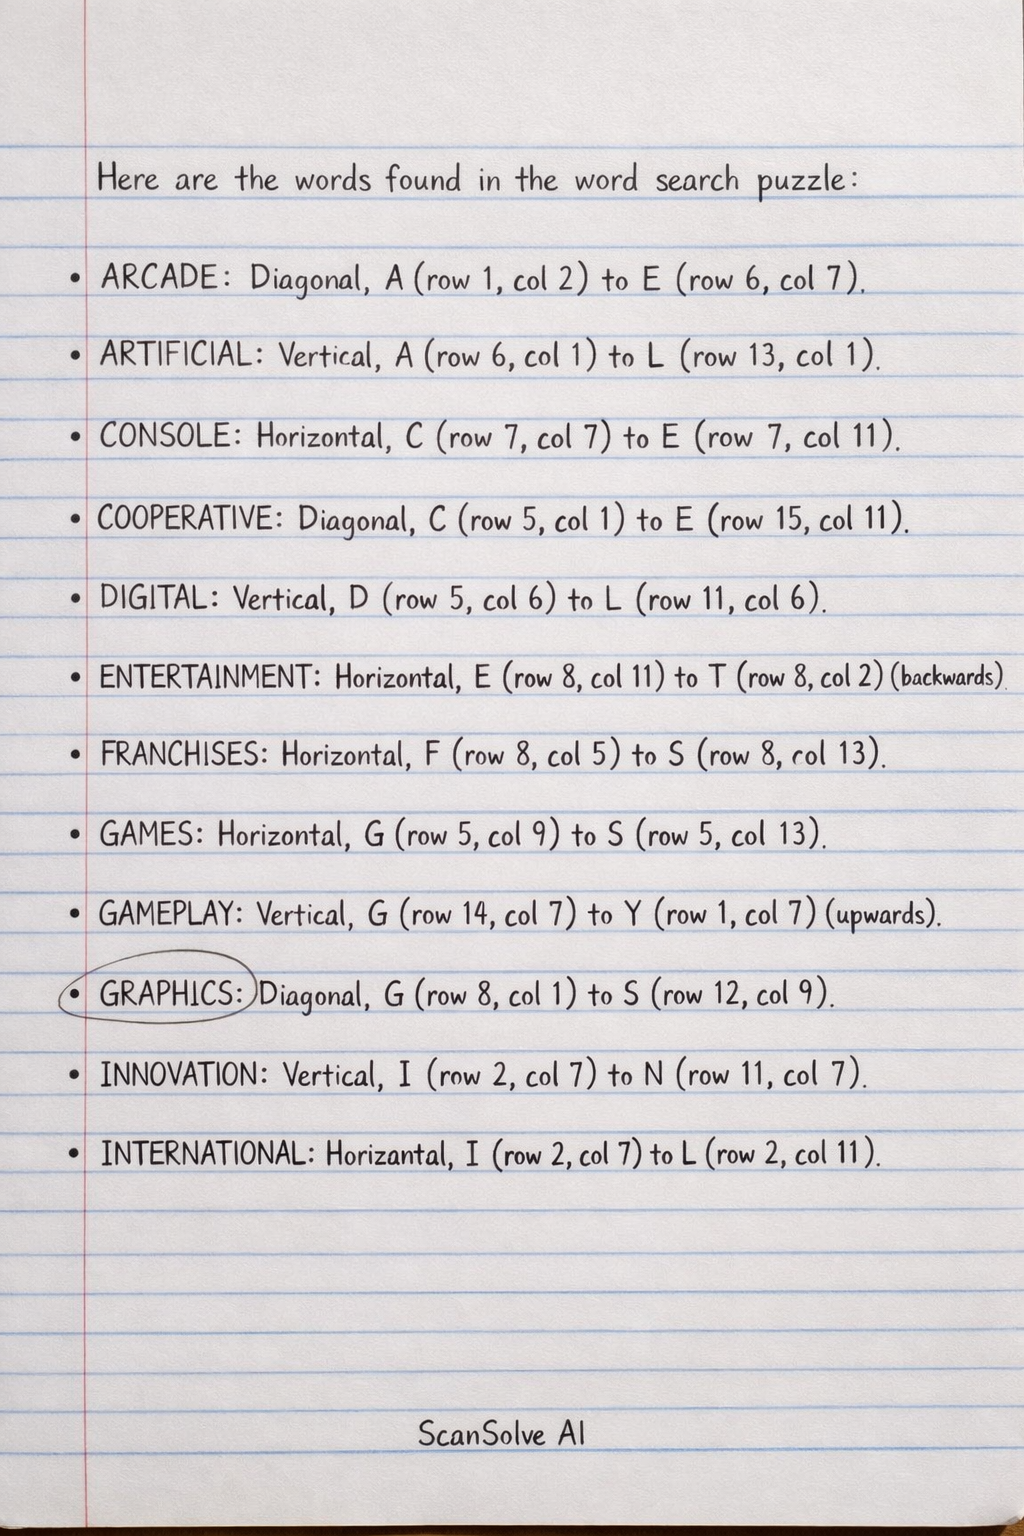 Here are the words found in the word search puzzle:
• ARCADE: Diagonal, A (row 1, col 2) to E (row 6, col 7).
• ARTIFICIAL: Vertical, A (row 6, col 1) to L (row 13, col 1).
• CONSOLE: Horizontal, C (row 7, col 7) to E (row 7, col 11).
• COOPERATIVE: Diagonal, C (row 5, col 1) to E (row 15, col 11).
• DIGITAL: Vertical, D (row 5, col 6) to L (row 11, col 6).
• ENTERTAINMENT: Horizontal, E (row 8, col 11) to T (row 8, col 2) (backwards).
• FRANCHISES: Horizontal, F (row 8, col 5) to S (row 8, col 13).
• GAMES: Horizontal, G (row 5, col 9) to S (row 5, col 13).
• GAMEPLAY: Vertical, G (row 14, col 7) to Y (row 1, col 7) (upwards).
• GRAPHICS: Diagonal, G (row 8, col 1) to S (row 12, col 9).
• INNOVATION: Vertical, I (row 2, col 7) to N (row 11, col 7).
• INTERNATIONAL: Horizantal, I (row 2, col 7) to L (row 2, col 11).
ScanSolve AI